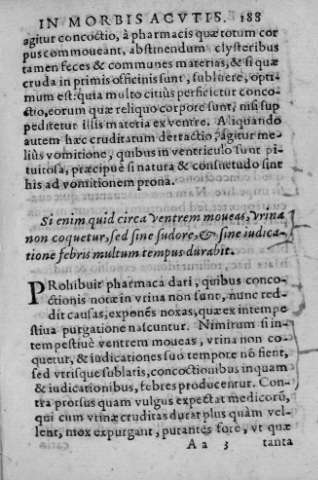 IN MORBIS ACVTIS. 188
agitur concoctio, à pharmacis quæ totum cor
pus commoueant, abstinendum clysteribus
tamen feces & communes materias, & si quæ
cruda in primis officinis sunt, subluere, opti-
mum est: quia multo citius perficictur conco-
ctio, eorum quæ reliquo corpore sunt, nisi sup
peditetur illis materia ex ventre. Aliquando
autem hæc cruditatum detractio, agitur me-
liùs vomitione, quibus in ventriculo sunt pi-
tuitosa, præcipuè si natura & consuetudo sint
his ad vomitionem prona.
Si enim quid circa ventrem moueas, vrina
non coquetur, sed sine sudore, & sine iudica-
tione febris multum tempus durabit.
PRohibuit pharmaca dari, quibus conco-
ctionis notæ in vrina non sunt, nunc red-
dit causas, exponẽs noxas, quæ ex intempe
stiua purgatione nascuntur. Nimirum si in-
tempestiuè ventrem moueas, vrina non co-
quetur, & iudicationes suo tempore nõ fient,
sed vtrisque sublatis, concoctionibus inquam
& iudicationibus, febres producentur. Con-
tra prorsus quam vulgus expectat medicorũ,
qui cum vrinæ cruditas durat plus quàm vel-
lent, mox expurgant, putantes fore, vt quæ
A a 3 tanta